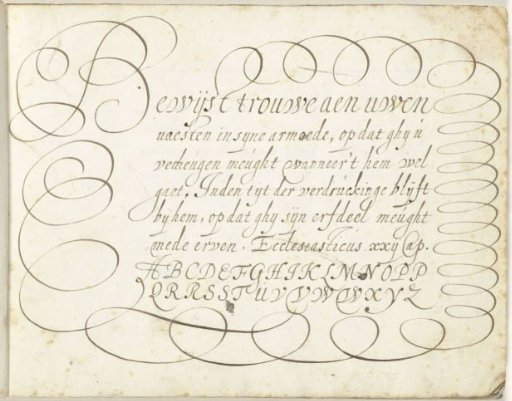 Bewijst trouwe aen uwen
naesten in syne armoede, op dat ghy u
verheugen meught wanneer't hem wel
gaet. Inden tyt der verdruckinge blijft
by hem, op dat ghy syn erfdeel meught
mede erven. Ecclesiasticus. xxij Cap.
A B C D E F G H I K L M N O P P
Q R R S S T U V V W W X Y Z